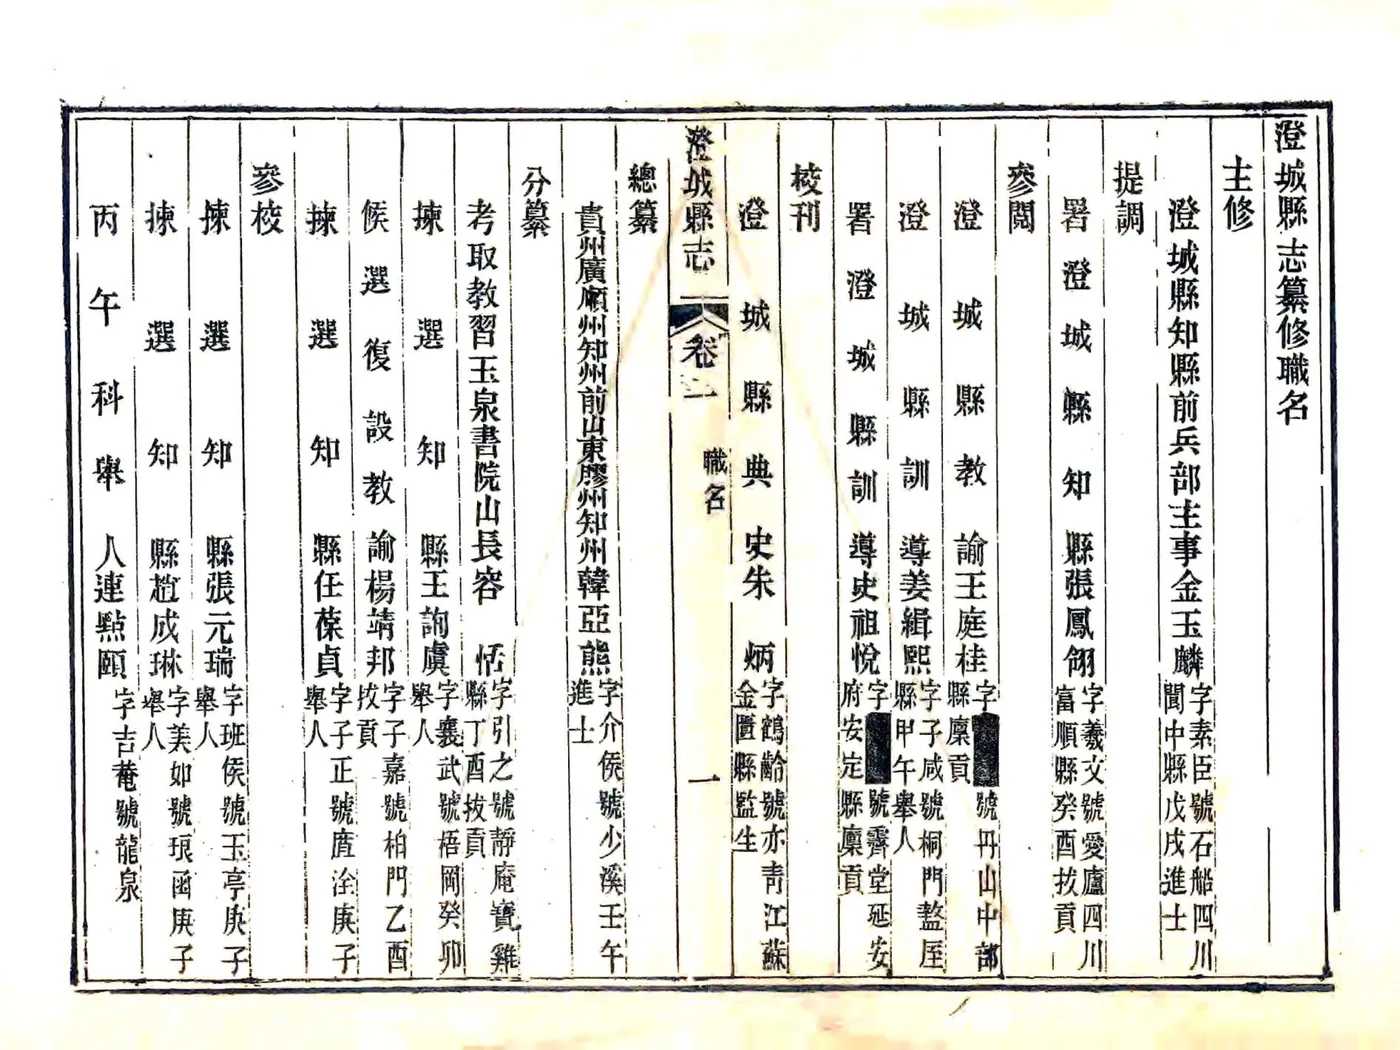 澄城縣志纂修職名
主修
澄城縣知縣前兵部主事金玉麟字素臣號石船四川閬中縣戊戌進士
提調
署澄城縣知縣張鳳翎字羲文號愛廬四川富順縣癸酉拔貢
參閱
澄城縣教諭王庭桂字號丹山中部縣廩貢
澄城縣訓導姜緝熙字子咸號桐門盩厔縣甲午舉人
署澄城縣訓導史祖悅字號霽堂延安府安定縣廩貢
校刊
澄城縣典史朱炳字鶴齡號亦青江蘇金匱縣監生
澄城縣志 卷 職名 一
總纂
貴州廣順州知州前山東膠州知州韓亞熊字介侯號少溪壬午進士
分纂
考取教習玉泉書院山長容恬字引之號靜庵寶雞縣丁酉拔貢
揀選知縣王詢虞字襄武號梧岡癸卯舉人
候選復設教諭楊靖邦字子嘉號柏門乙酉拔貢
揀選知縣任葆貞字子正號庢淦庚子舉人
參校
揀選知縣張元瑞字班侯號玉亭庚子舉人
揀選知縣趙成琳字美如號琅函庚子舉人
丙午科舉人連點頤字吉菴號龍泉